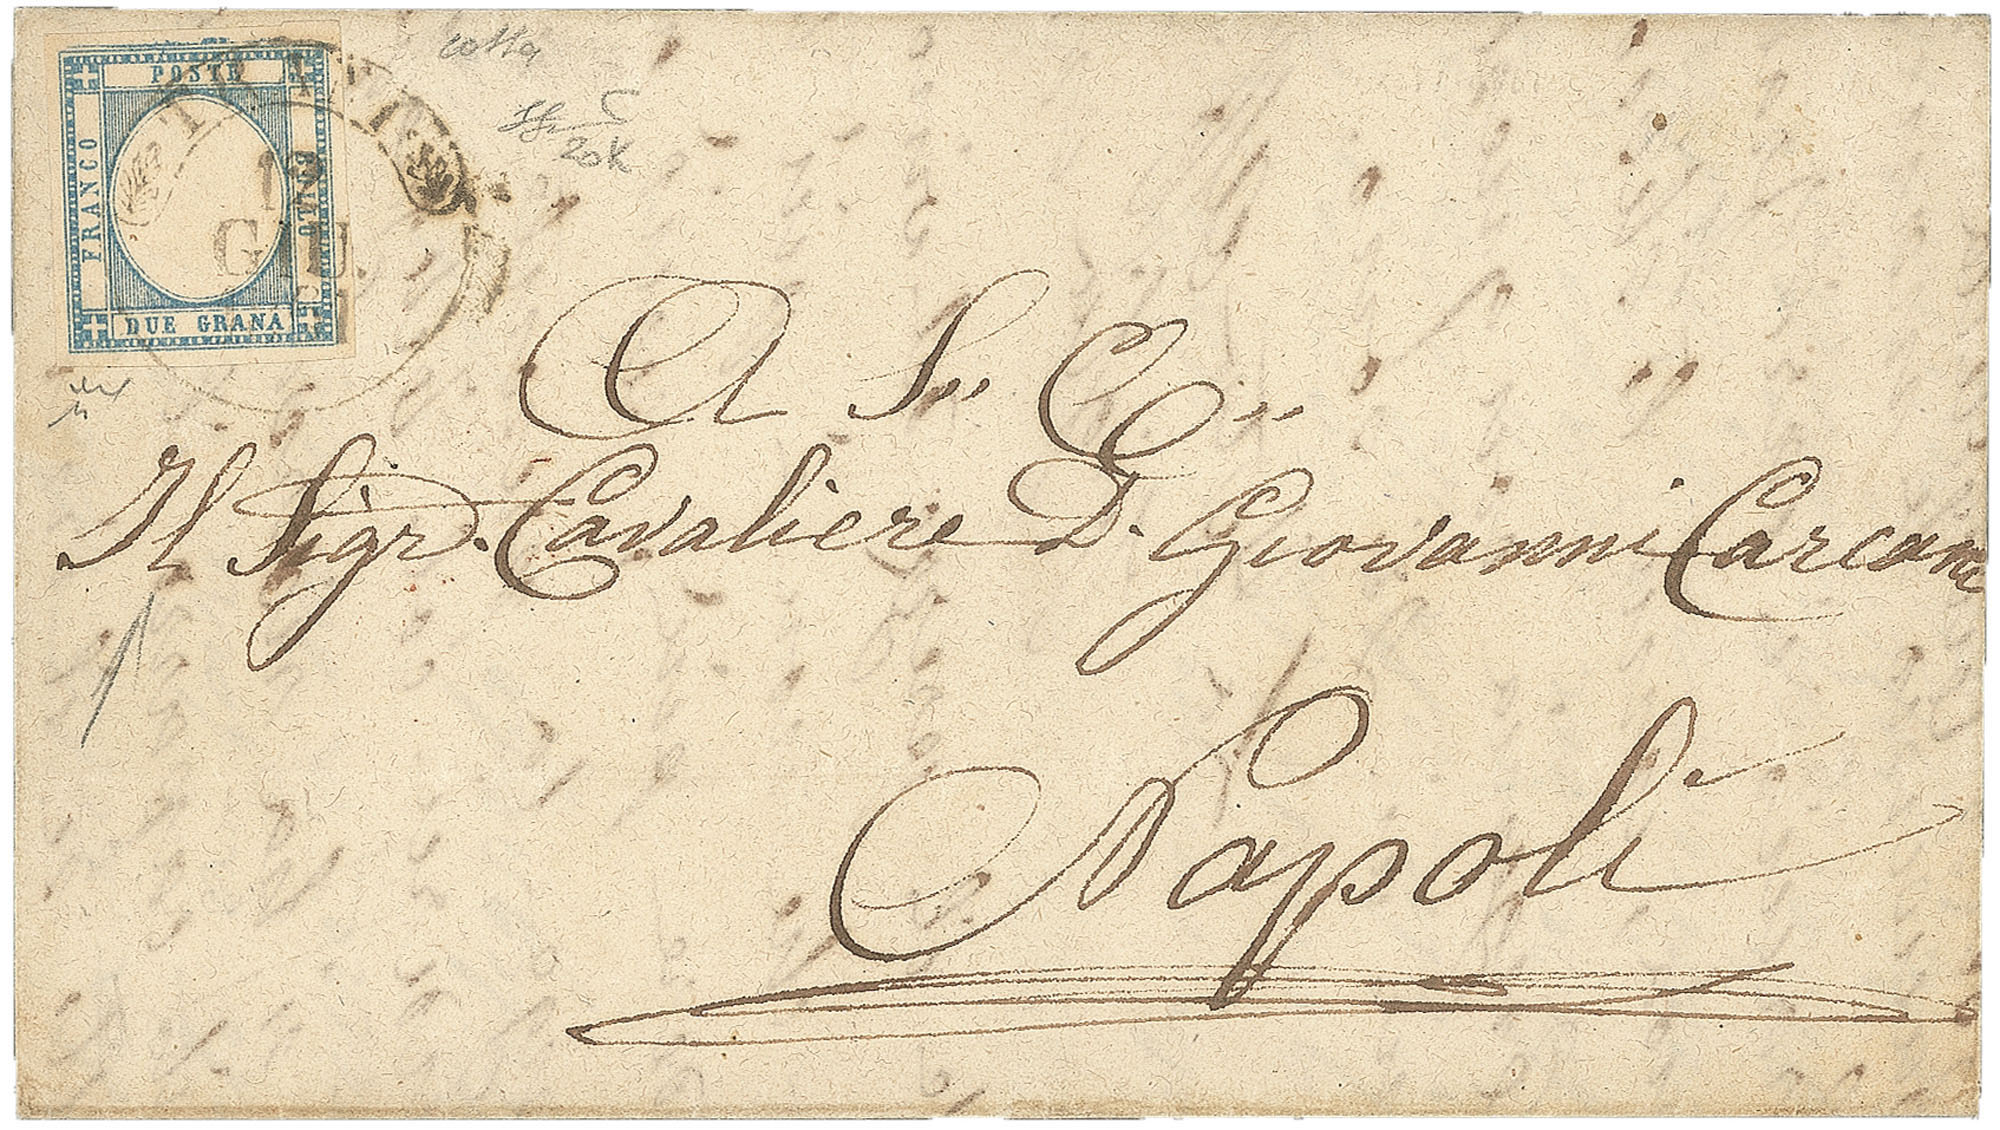 POSTE
FRANCO
BOLLO
DUE GRANA
12
GIU.
A S. E.
Il Sigr. Cavaliere D. Giovanni Carcani
Napoli
20k